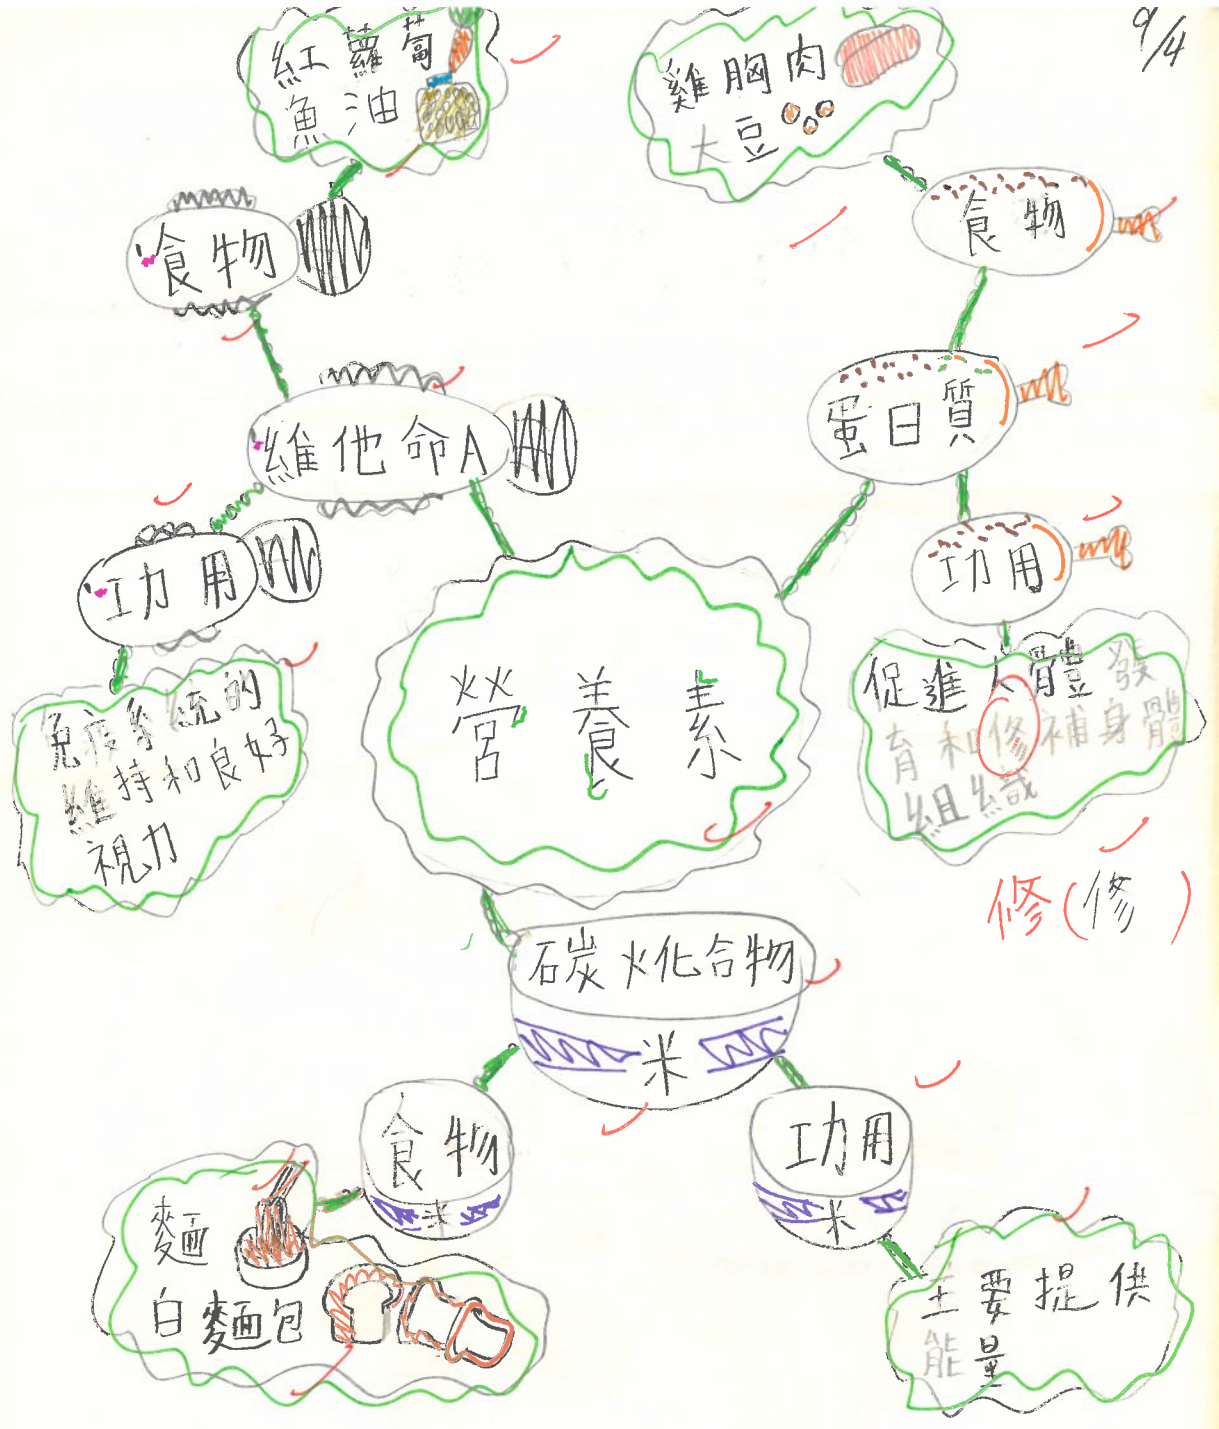 9/4
紅蘿蔔
魚油
雞胸肉
大豆
食物
食物
維他命A
蛋日質
功用
功用
免疫系統的
維持和良好
視力
營養素
促進人體發
育和修補身體
組織
修(修)
碳火化合物
米
食物
米
功用
米
麵
白麵包
主要提供
能量